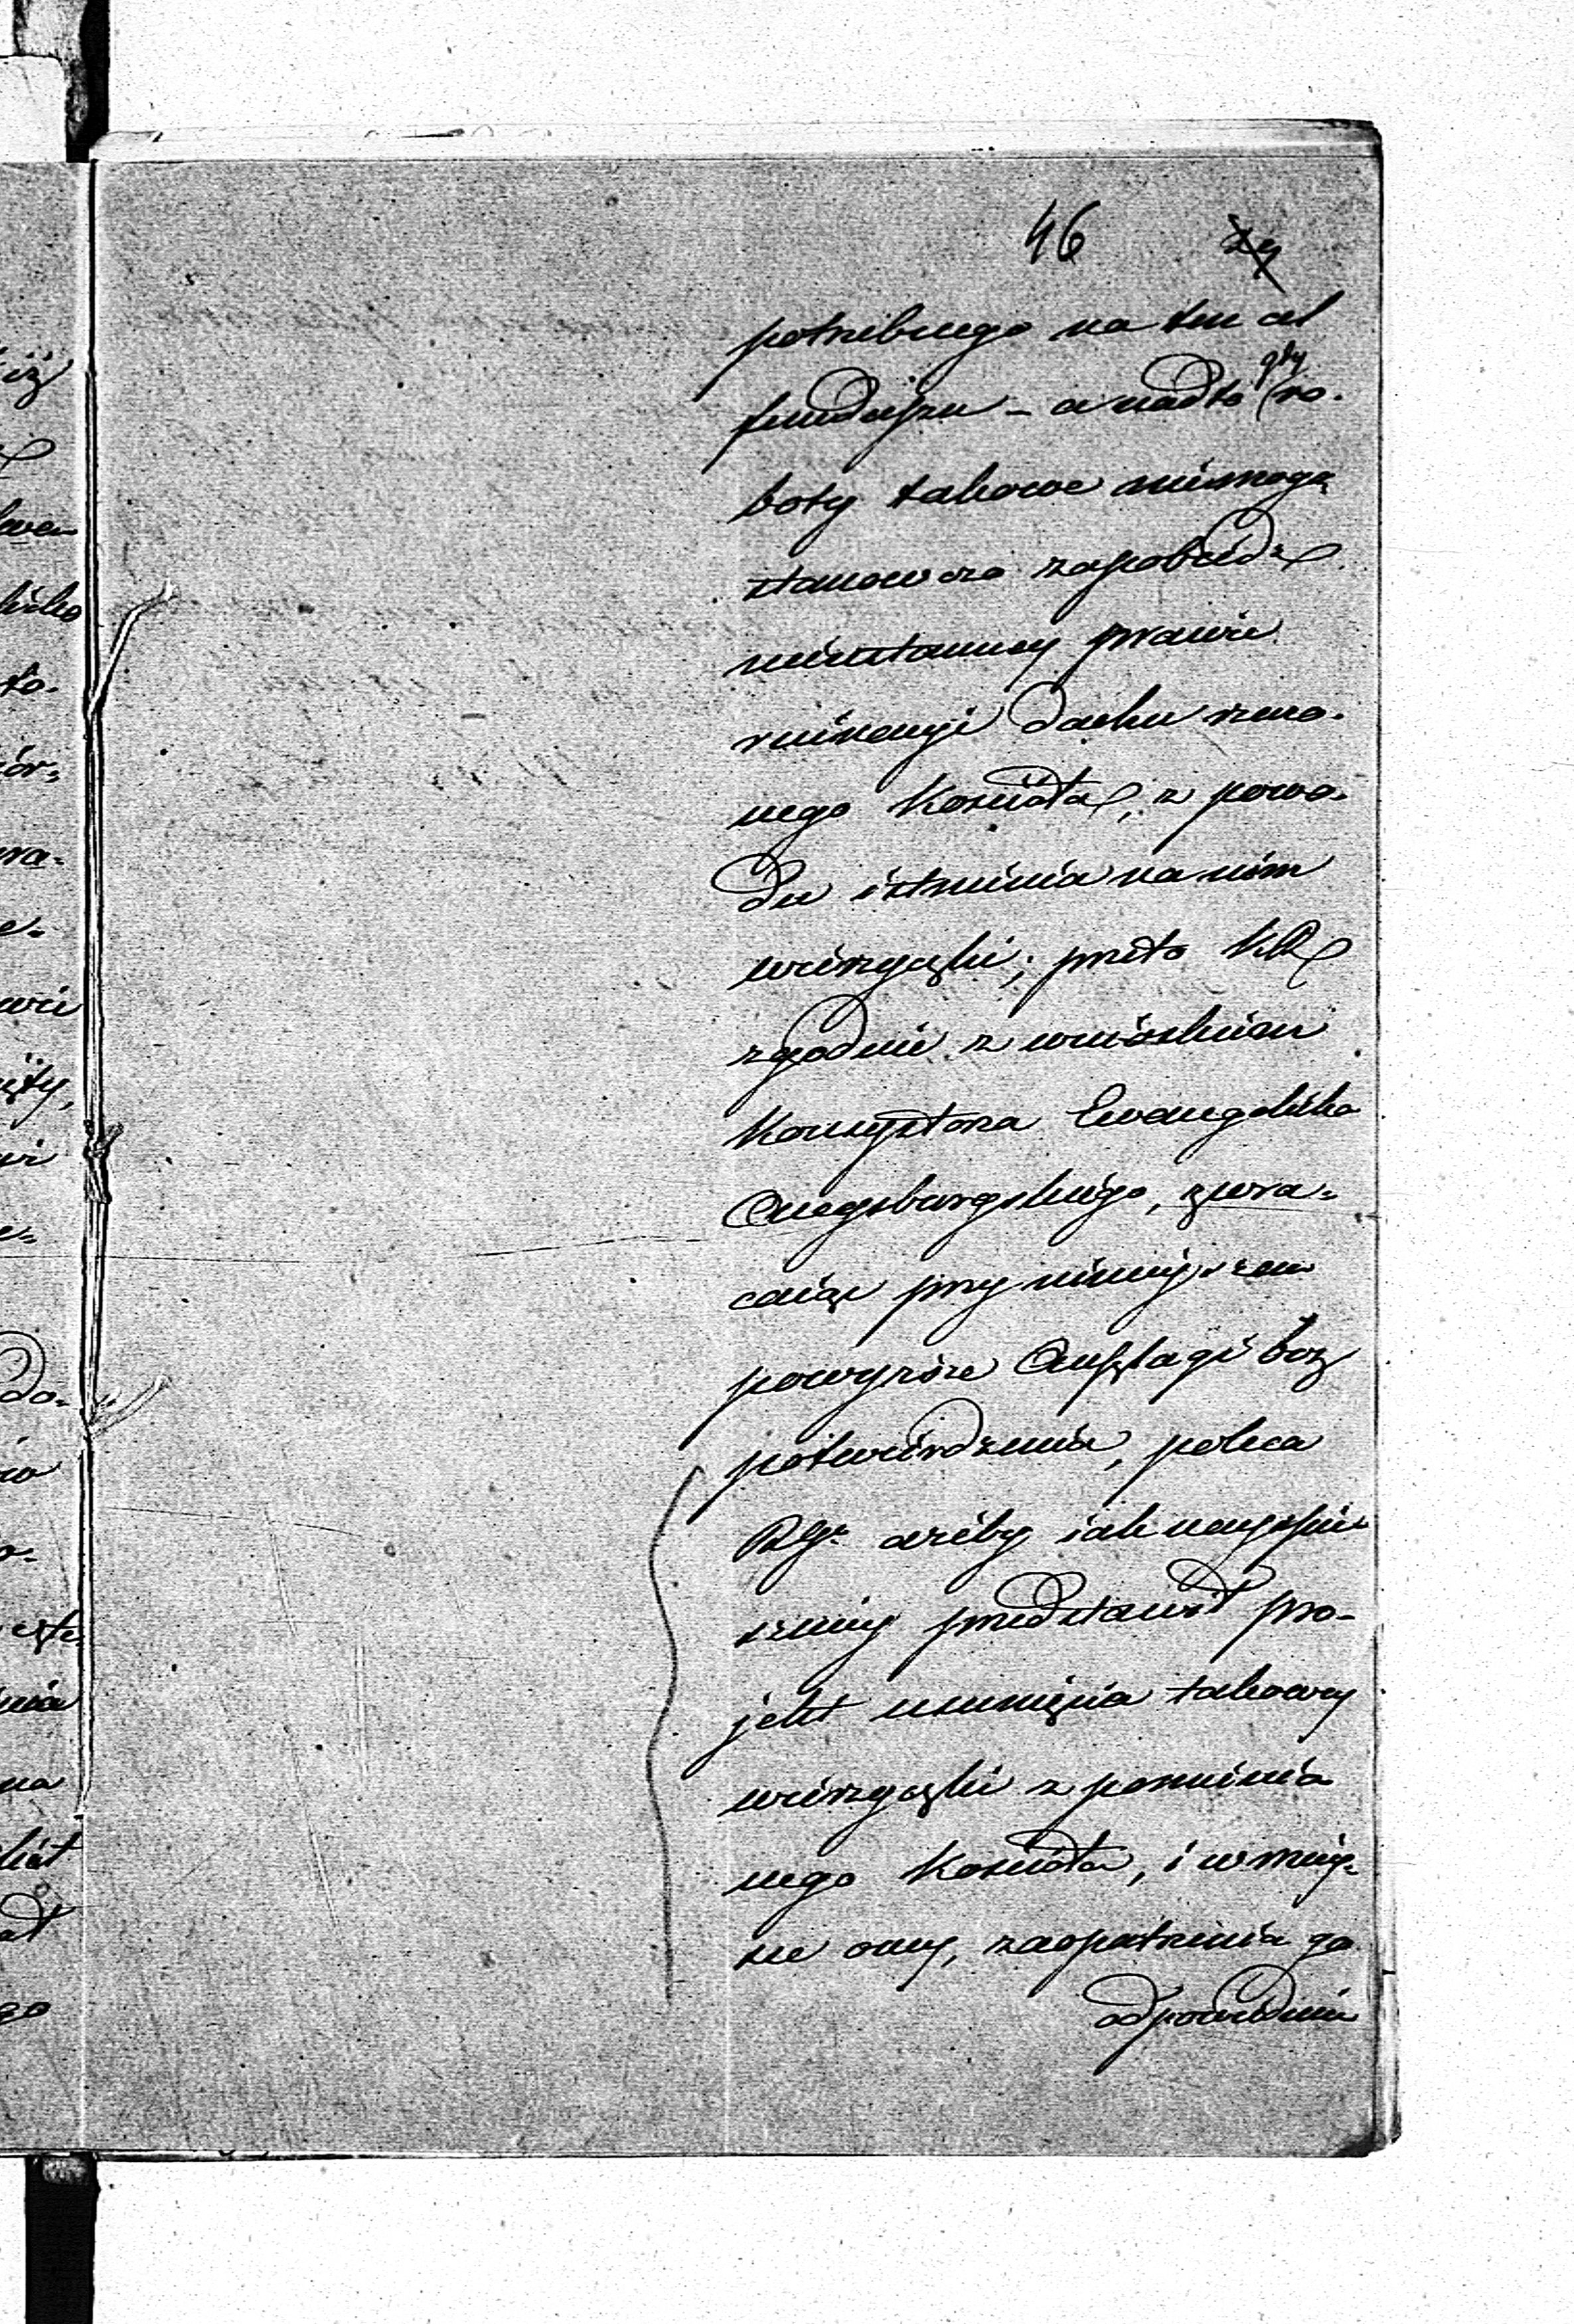 46 29
potrzebnego na ten cel
funduszu – a nadto gdy ro-
boty takowe niemogą
stanowczo zapobiedz
nieustannej prawie
ruinacyi dachu rzeczo-
nego Kościoła, z powo-
du istnienia na nim
wieżyczki; przeto KR
zgodnie z wnioskiem
Konsystorza Ewangelicko
Augsburgskiego, zwra-
caiąc przy niniejszem
powyższe Anszlagi bez
potwierdzenia, poleca
RG. ażeby iak nayspie-
szniey przedstawił pro-
jekt usunięcia takowey
wieżyczki z pomienio-
nego Kościoła, i w miey-
sce oney, zaopatrzenia go
odpowiednim
iż
to.
ór-
wie
Do-
nia
na